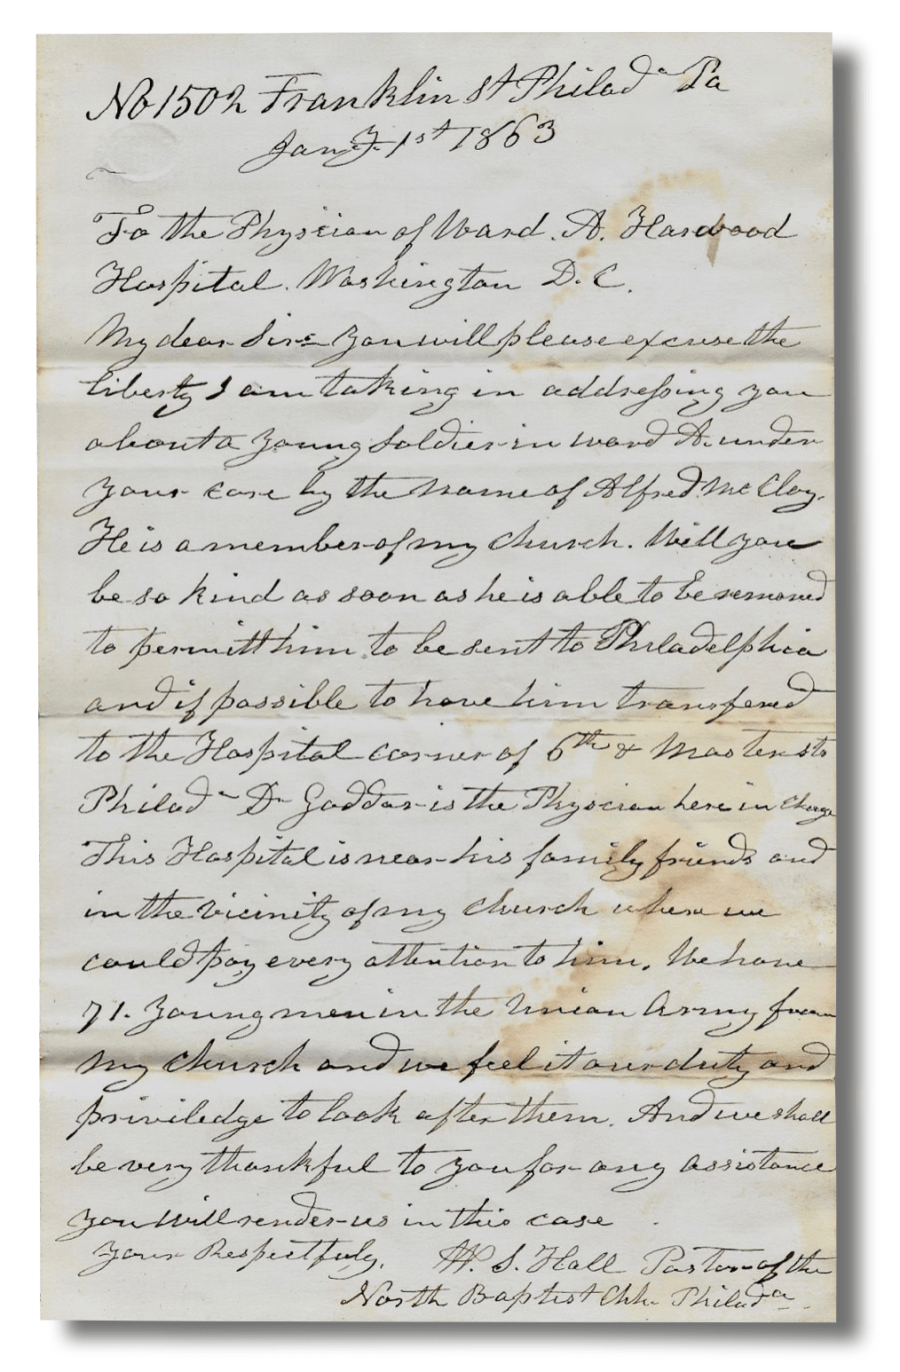 No 1502 Franklin St Philada Pa
Jany 1st 1863
To the Physician of Ward. A. Harwood
Hospital. Washington D. C.
My dear Sir= You will please excuse the
liberty I am taking in addressing you
about a young soldier in ward A. under
your care by the name of Alfred Mc Cloy.
He is a member of my church. Will you
be so kind as soon as he is able to be removed
to permitt him to be sent to Philadelphia
and if possible to have him transfered
to the Hospital corner of 6th & Master sts
Philada Dr Goddar is the Physician here in charge
This Hospital is near his family friends and
in the vicinity of my church where we
could pay every attention to him. We have
71. Young men in the Union Army from
my church and we feel it our duty and
priviledge to look after them. And we shall
be very thankful to you for any assistance
you will render us in this case
Your Respectfuly. W. S. Hall Pastor of the
North Baptist Chh. Philada